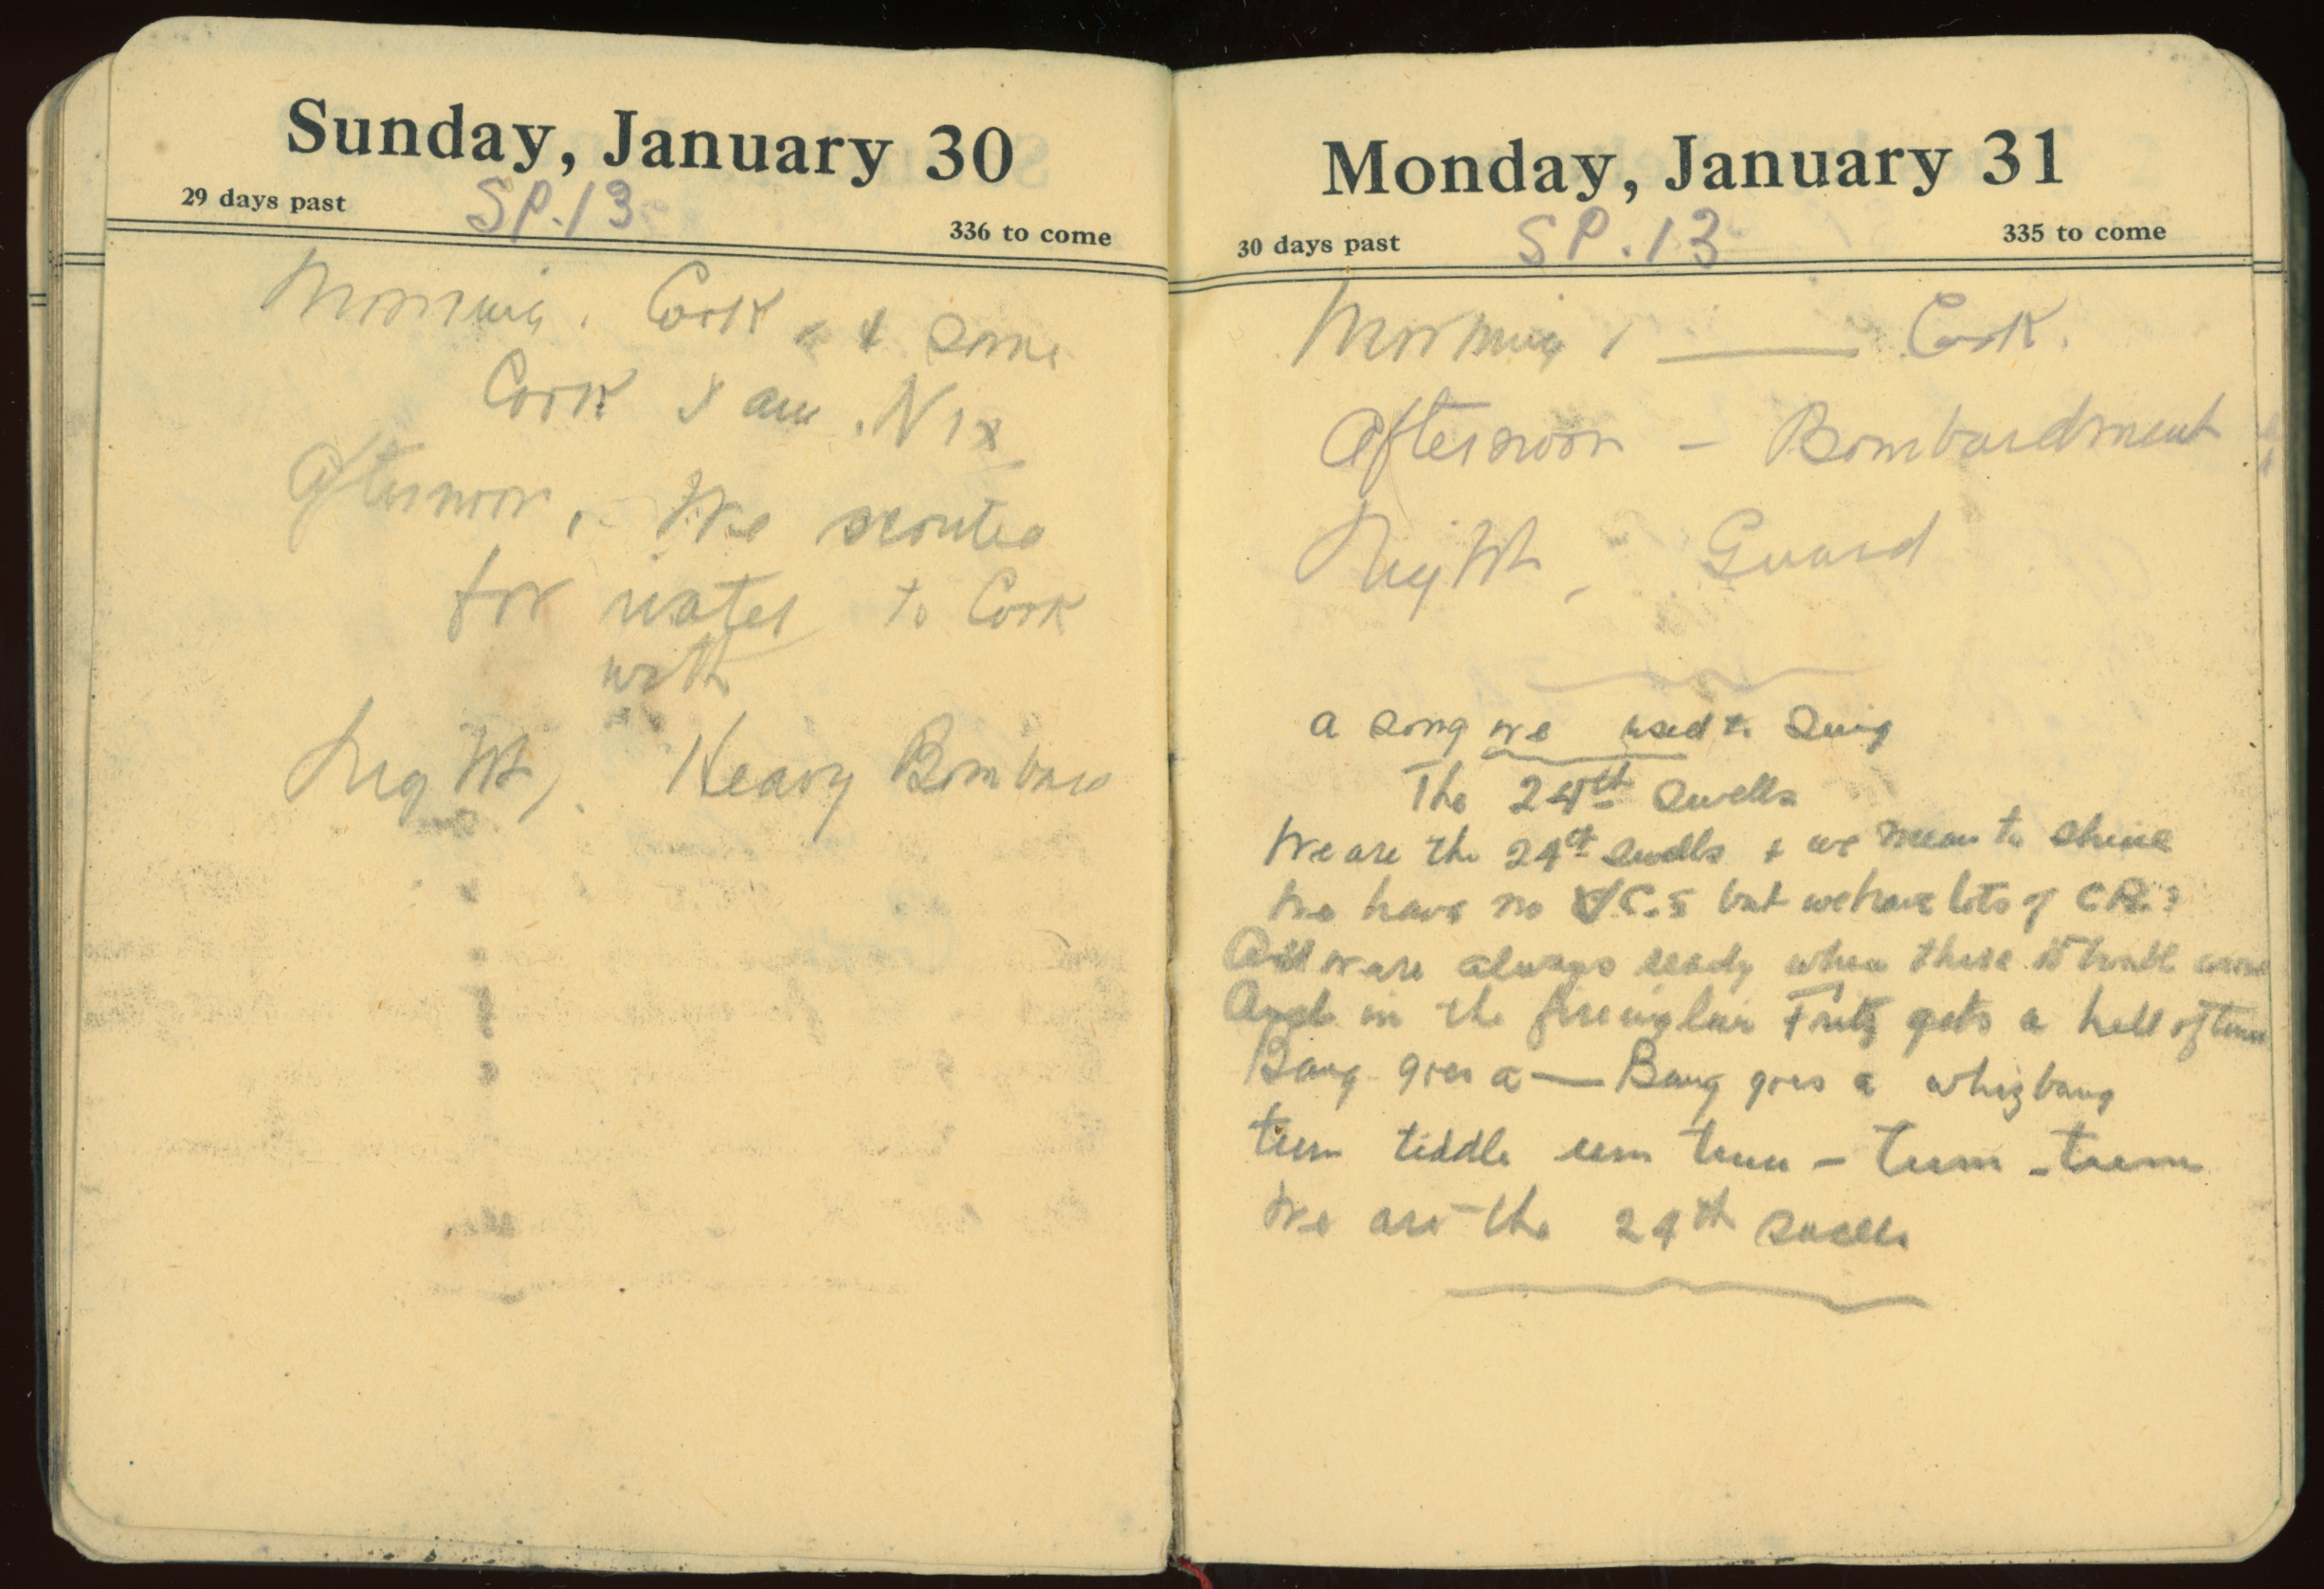 Sunday, January 30
29 days past
SP.13
336 to come
Morning, Cook & some
Cook I am. Nix
Afternoon, We scouted
for water to Cook
with
Night, Heavy Bombard
Monday, January 31
30 days past
SP.13
335 to come
Morning, — Cook.
Afternoon - Bombardment
Night, Guard
A song we used to sing
The 24th Swells
We are the 24th Swells & we mean to shine
We have no V.C.s but we have lots of C.B.s
we are always ready when there
And in the firing line Fritz gets a hell of time
Bang goes a — Bang goes a whizbang
tum tiddle um tum - tum - tum
We are the 24th Swells